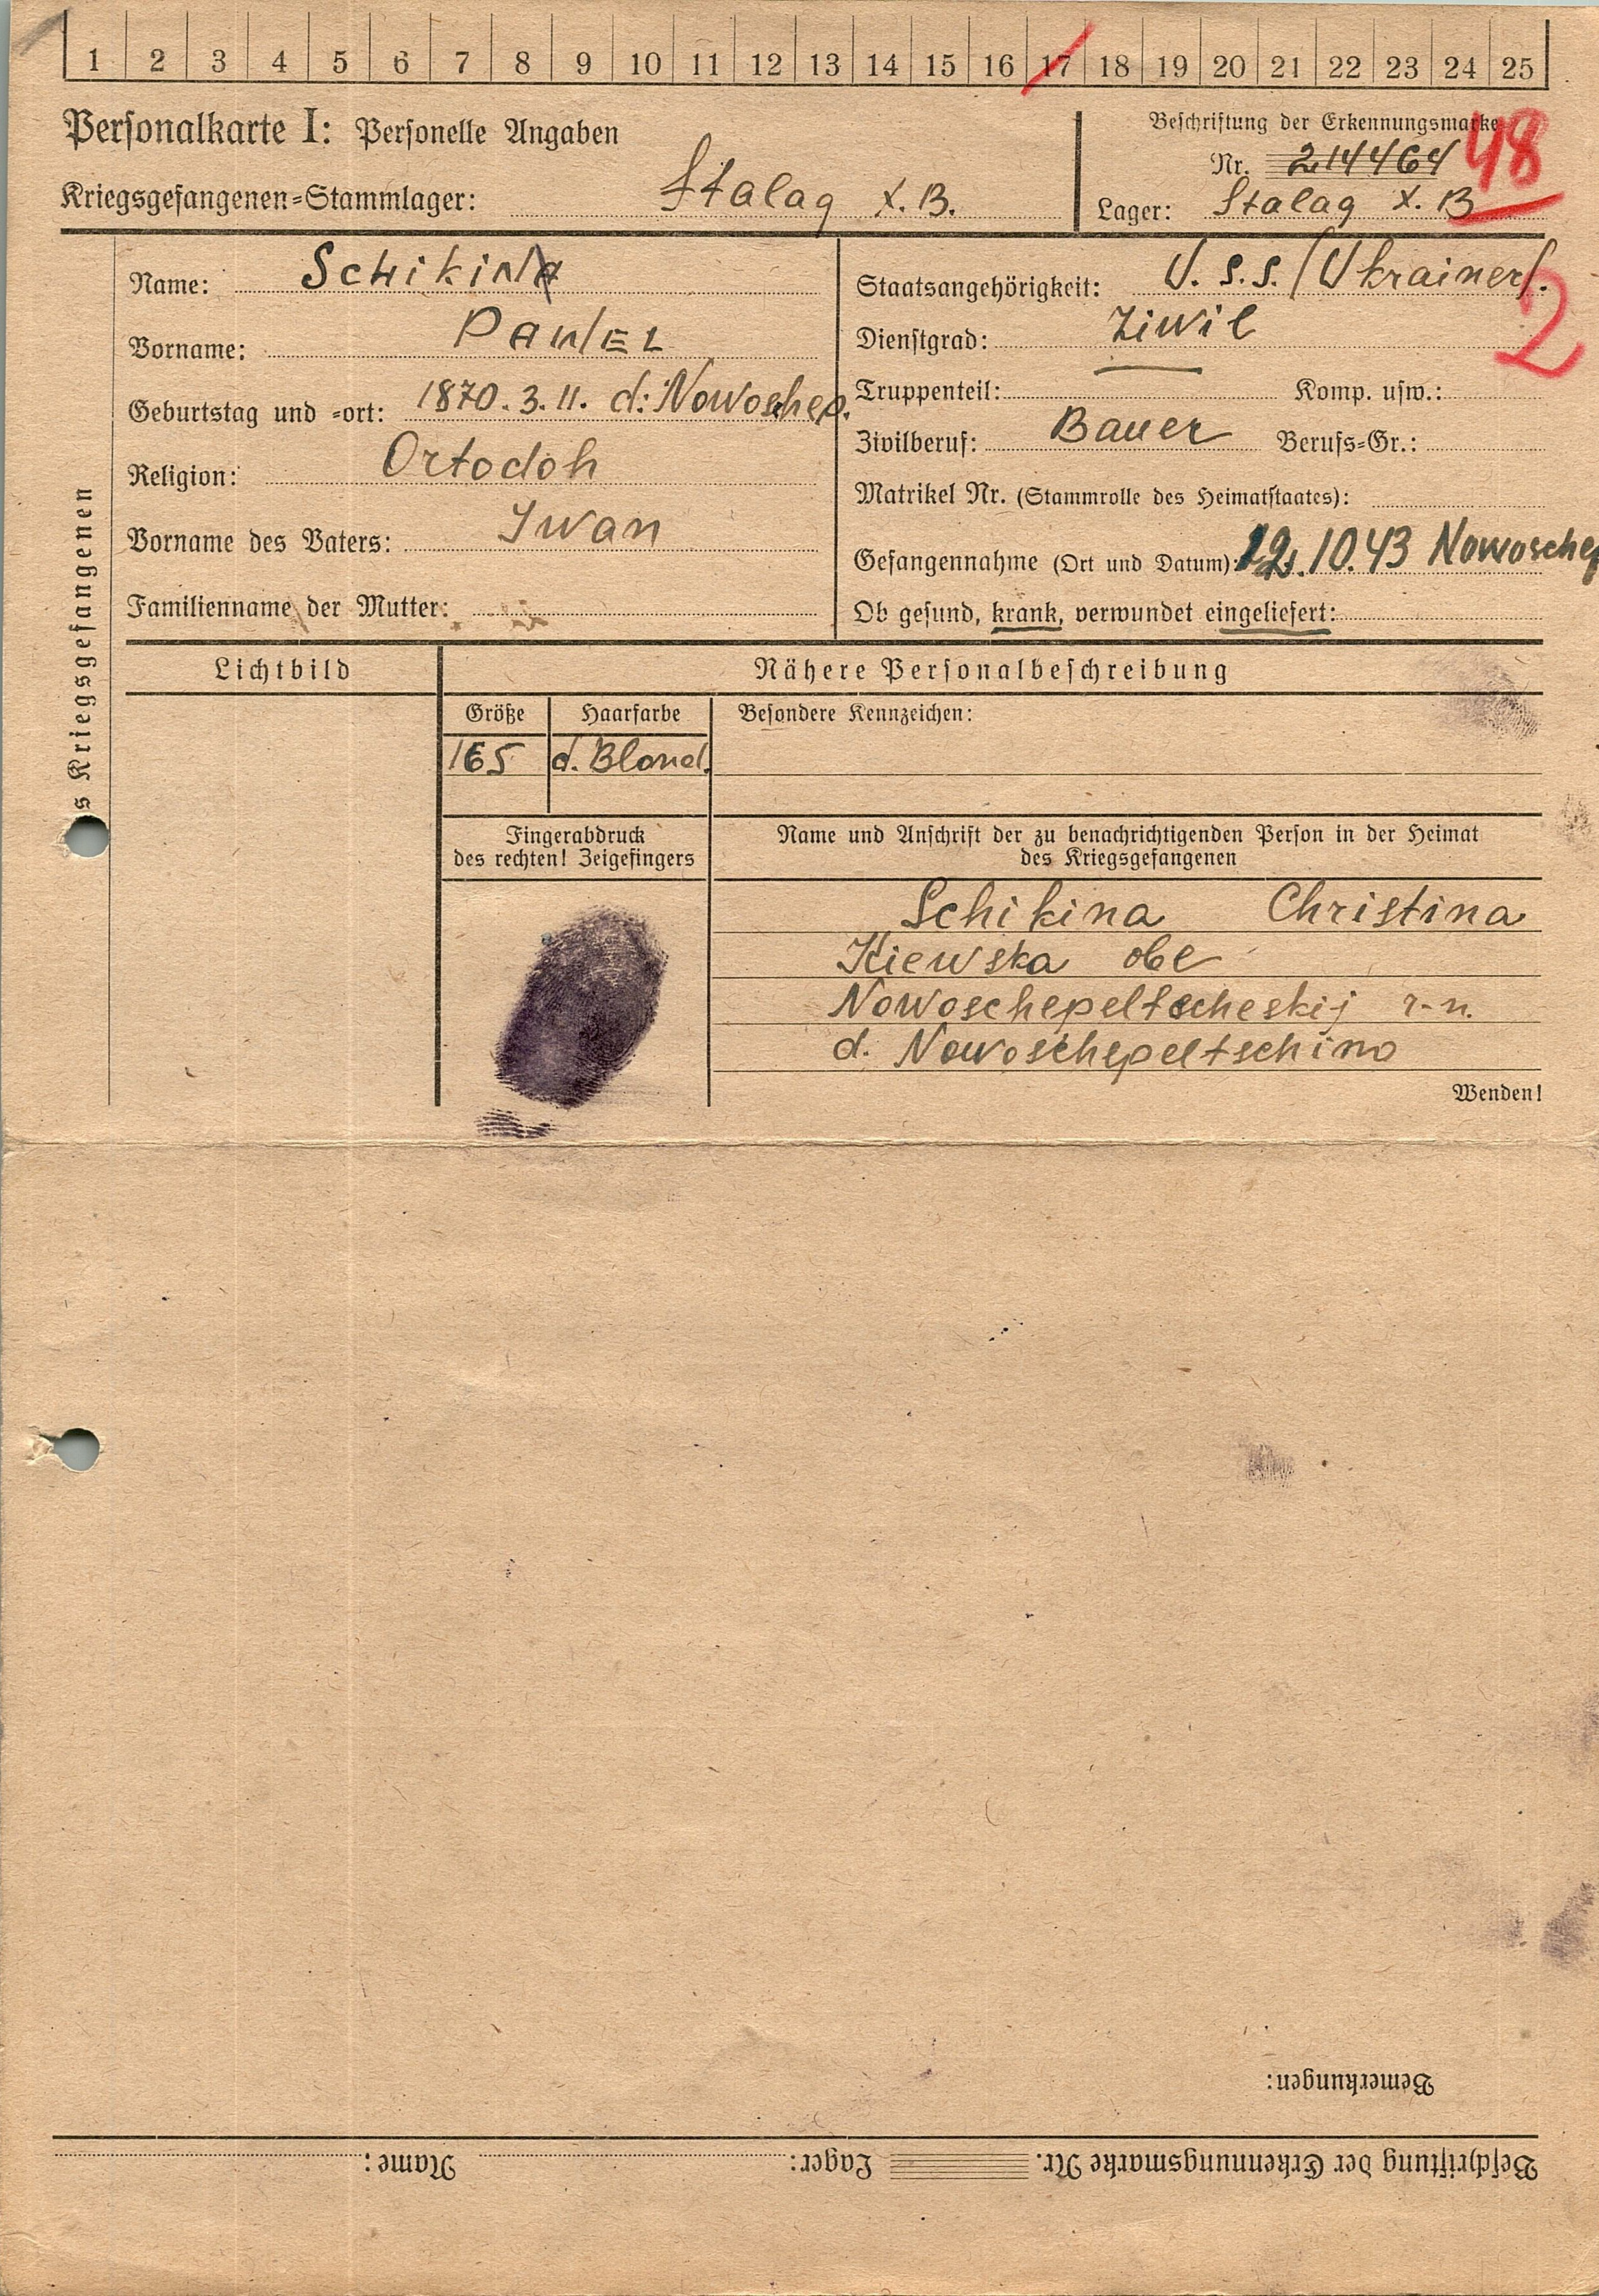 1 2 3 4 5 6 7 8 9 10 11 12 13 14 15 16 17 18 19 20 21 22 23 24 25
Personalkarte I: Personelle Angaben
Beschriftung der Erkennungsmarke
Nr. 214464 48
Kriegsgefangenen-Stammlager: Stalag X. B.
Lager: Stalag X. B
des Kriegsgefangenen
Name: Schikina
Vorname: PAWEL
Geburtstag und -ort: 1870. 3. 11. d: Nowoschep.
Religion: Ortodoh
Vorname des Vaters: Iwan
Familienname der Mutter:
Staatsangehörigkeit: U. S. S. (Ukrainer).
2
Dienstgrad: Ziwil
Truppenteil: Komp. usw.:
Zivilberuf: Bauer Berufs-Gr.:
Matrikel Nr. (Stammrolle des Heimatstaates):
Gefangennahme (Ort und Datum): 12. 10. 43 Nowoschep
Ob gesund, krank, verwundet eingeliefert:
Lichtbild
Nähere Personalbeschreibung
Größe Haarfarbe Besondere Kennzeichen:
165 d. Blond.
Fingerabdruck
des rechten! Zeigefingers
Name und Anschrift der zu benachrichtigenden Person in der Heimat
des Kriegsgefangenen
Schikina Christina
Kiewska obl
Nowoschepeltscheskij r-n.
d. Nowoschepeltschino
Wenden!
Bemerkungen:
Beschriftung der Erkennungsmarke Nr. Lager: Name: